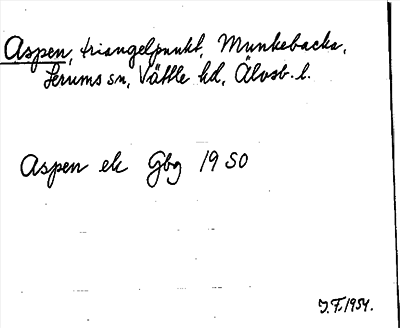 Aspen, triangelpunkt, Munkebacka,
Lerums sn, Vättle hd, Älvsb. l.
Aspen ek Gbg 19 SO
J.F. 1954.